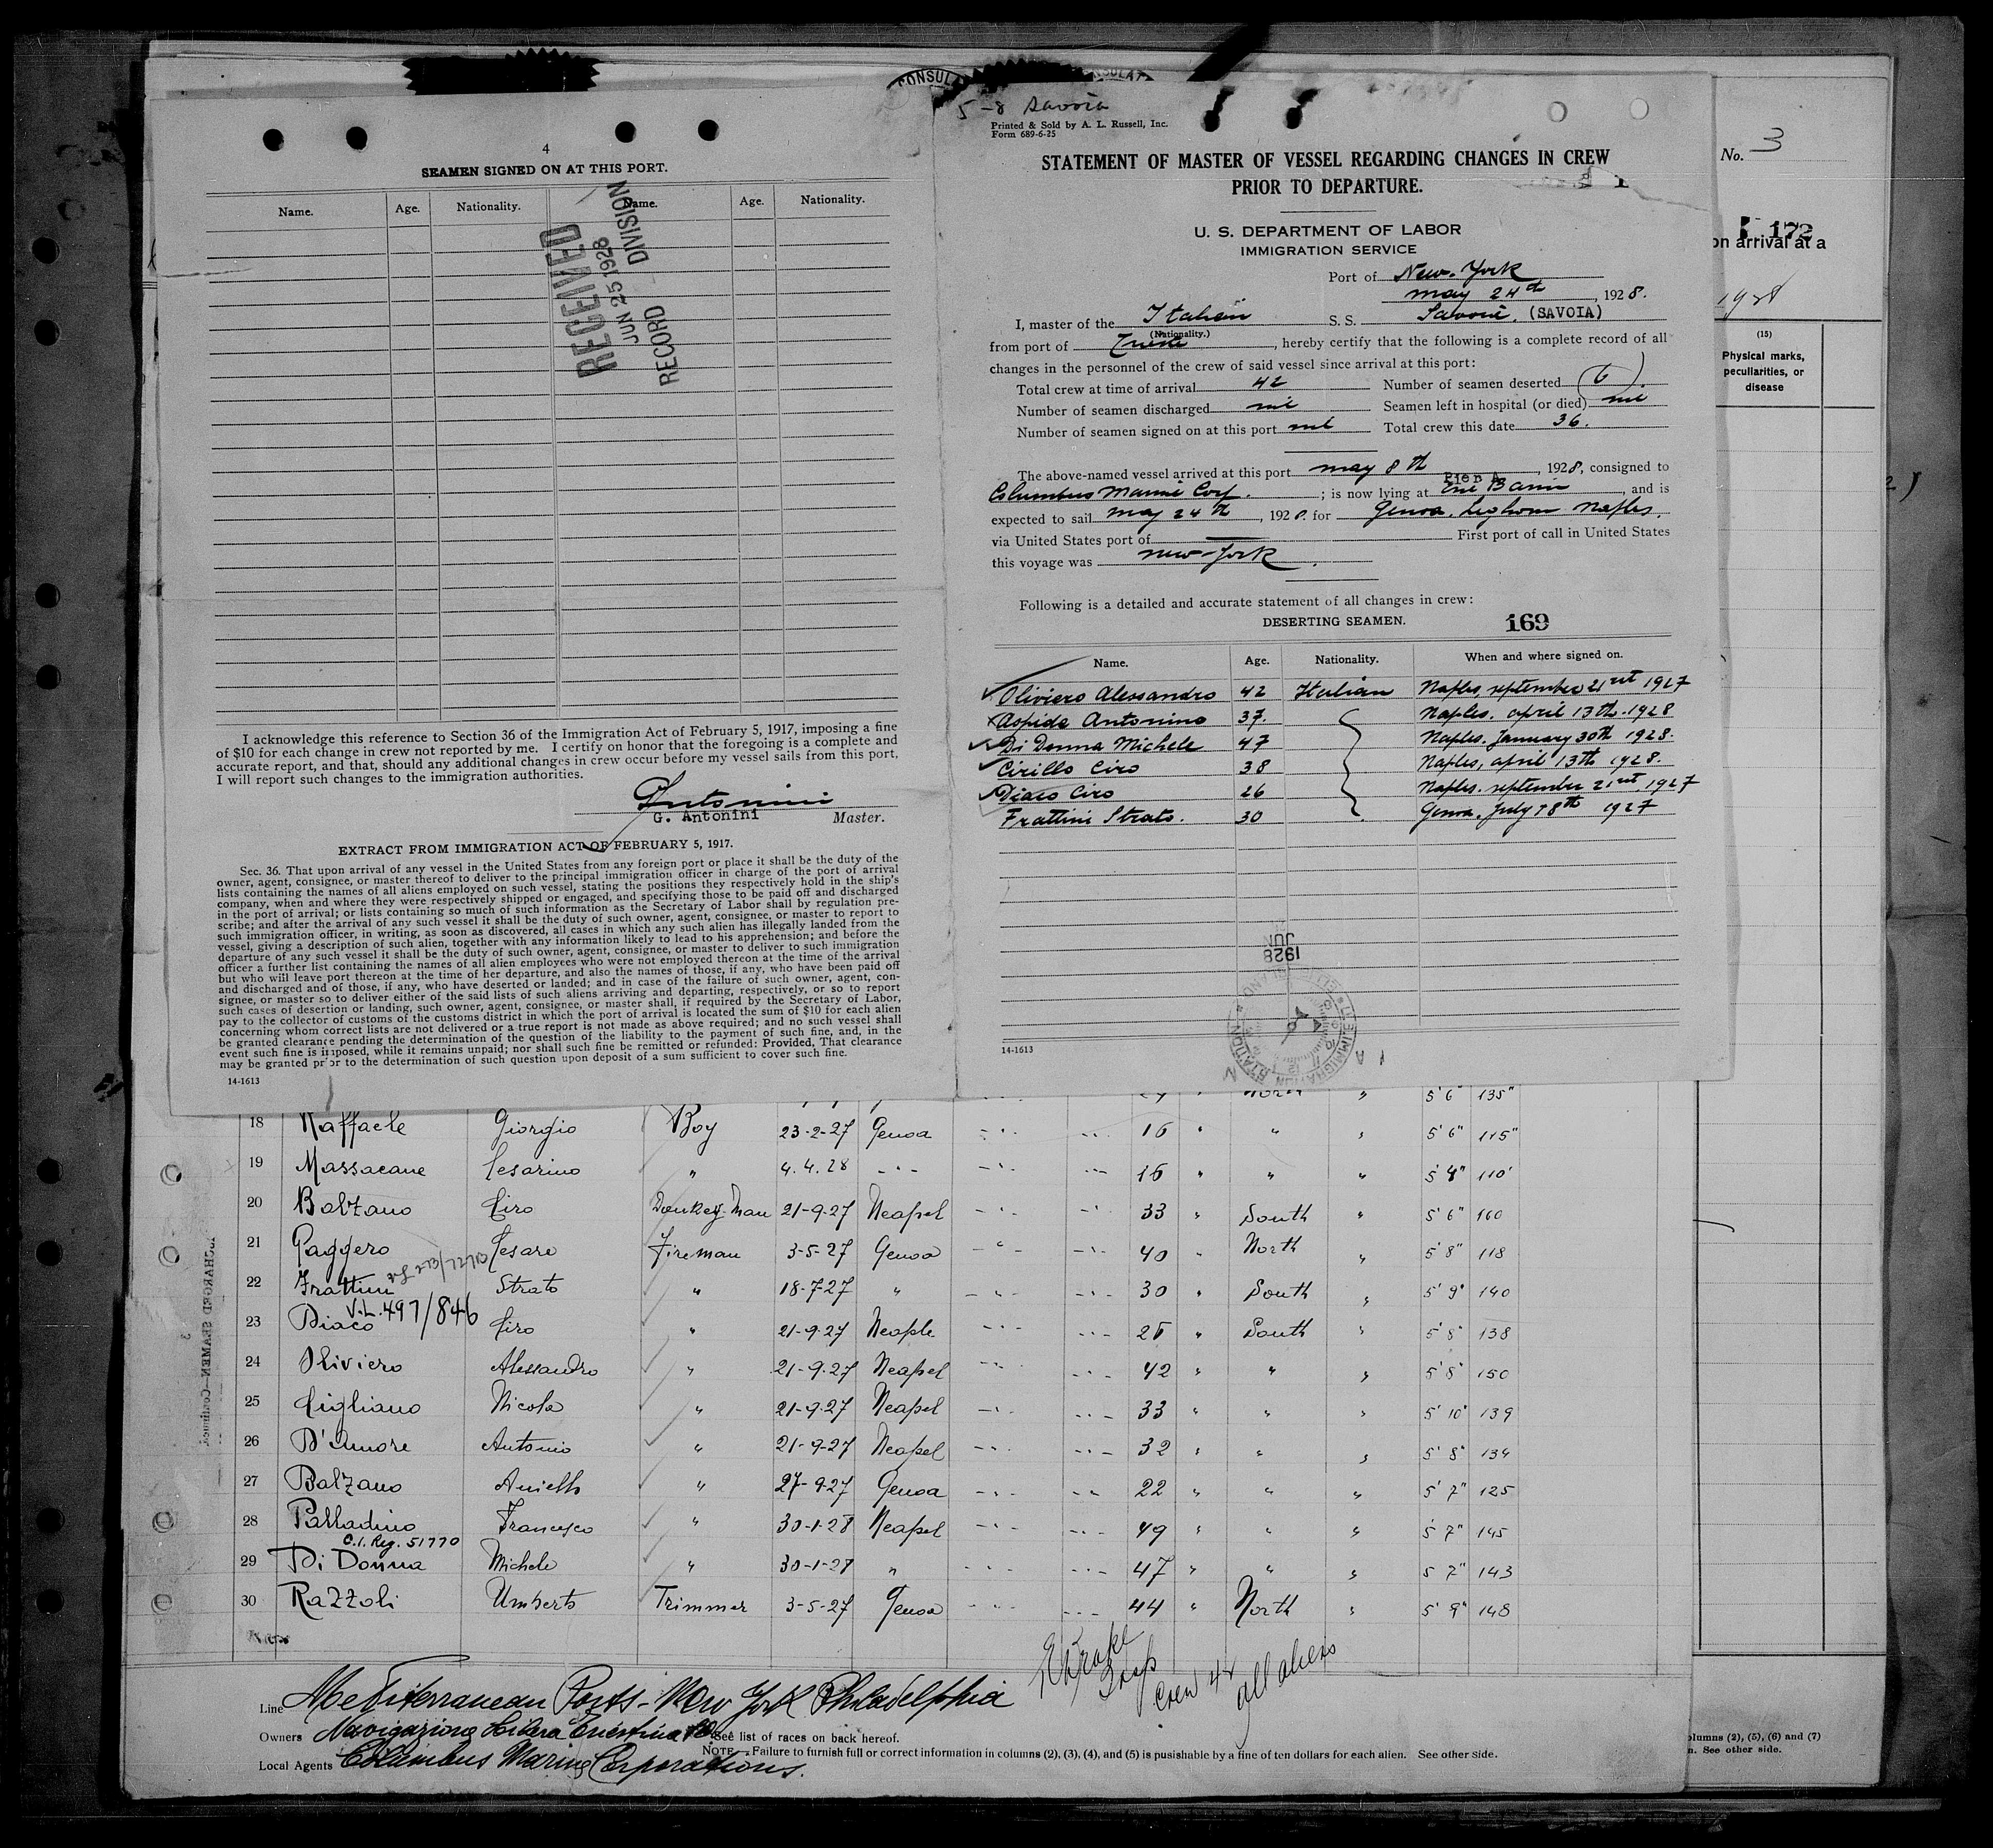 CONSULA
NSULAT
4
SEAMEN SIGNED ON AT THIS PORT.
Name. Age. Nationality. Name. Age. Nationality.
RECEIVED
JUN 25 1928
RECORD DIVISION
I acknowledge this reference to Section 36 of the Immigration Act of February 5, 1917, imposing a fine
of $10 for each change in crew not reported by me. I certify on honor that the foregoing is a complete and
accurate report, and that, should any additional changes in crew occur before my vessel sails from this port,
I will report such changes to the immigration authorities.
Antonini
G. Antonini Master.
EXTRACT FROM IMMIGRATION ACT OF FEBRUARY 5, 1917.
Sec. 36. That upon arrival of any vessel in the United States from any foreign port or place it shall be the duty of the
owner, agent, consignee, or master thereof to deliver to the principal immigration officer in charge of the port of arrival
lists containing the names of all aliens employed on such vessel, stating the positions they respectively hold in the ship's
company, when and where they were respectively shipped or engaged, and specifying those to be paid off and discharged
in the port of arrival; or lists containing so much of such information as the Secretary of Labor shall by regulation pre-
scribe; and after the arrival of any such vessel it shall be the duty of such owner, agent, consignee, or master to report to
such immigration officer, in writing, as soon as discovered, all cases in which any such alien has illegally landed from the
vessel, giving a description of such alien, together with any information likely to lead to his apprehension; and before the
departure of any such vessel it shall be the duty of such owner, agent, consignee, or master to deliver to such immigration
officer a further list containing the names of all alien employees who were not employed thereon at the time of the arrival
but who will leave port thereon at the time of her departure, and also the names of those, if any, who have been paid off
and discharged and of those, if any, who have deserted or landed; and in case of the failure of such owner, agent, con-
signee, or master so to deliver either of the said lists of such aliens arriving and departing, respectively, or so to report
such cases of desertion or landing, such owner, agent, consignee, or master shall, if required by the Secretary of Labor,
pay to the collector of customs of the customs district in which the port of arrival is located the sum of $10 for each alien
concerning whom correct lists are not delivered or a true report is not made as above required; and no such vessel shall
be granted clearance pending the determination of the question of the liability to the payment of such fine, and, in the
event such fine is imposed, while it remains unpaid; nor shall such fine be remitted or refunded: Provided, That clearance
may be granted prior to the determination of such question upon deposit of a sum sufficient to cover such fine.
14-1613
5-8 Savoia
Printed & Sold by A. L. Russell, Inc.
Form 689-6-25
STATEMENT OF MASTER OF VESSEL REGARDING CHANGES IN CREW
PRIOR TO DEPARTURE.
U. S. DEPARTMENT OF LABOR
IMMIGRATION SERVICE
Port of New-York
May 24th, 1928.
I, master of the Italian S. S. Savoia. (SAVOIA)
(Nationality.)
from port of Trieste, hereby certify that the following is a complete record of all
changes in the personnel of the crew of said vessel since arrival at this port:
Total crew at time of arrival 42 Number of seamen deserted (6).
Number of seamen discharged nil Seamen left in hospital (or died) nil
Number of seamen signed on at this port nil Total crew this date 36.
The above-named vessel arrived at this port May 8th, 1928, consigned to
Pier A
Columbus Marine Corp.; is now lying at Erie Basin, and is
expected to sail May 24th, 1928. for Genoa, Leghorn Naples.
via United States port of — First port of call in United States
this voyage was New-York.
Following is a detailed and accurate statement of all changes in crew:
DESERTING SEAMEN. 169
Name. Age. Nationality. When and where signed on.
Oliviero Alessandro 42 Italian Naples, september 21rst 1927
Aspide Antonino 37. Naples. april 13th-1928
Di Donna Michele 47 Naples. January 30th 1928.
Cirillo Ciro 38 Naples, april 13th 1928.
Diaco Ciro 26 Naples. september 21rst. 1927
Frattini Strato. 30 Genoa. July 18th 1927
JUN
1928
IMMIGRATION STATION
14-1613
No. 3
172
on arrival at a
1928
(15)
Physical marks,
peculiarities, or
disease
North " 5'6" 135"
18 Raffaele Giorgio Boy 23-2-27 Genoa 16 " " " 5'6" 115"
19 Massacane Cesarino " 4.4.28 16 " " " 5'4" 110'
20 Balzano Ciro Donkey-Man 21-9-27 Neapel 33 " South " 5'6" 160
21 Gaggero Cesare Fireman 3-5-27 Genoa 40 " North " 5'8" 118
22 Frattini Strato " 18-7-27 " 30 " South " 5'9" 140
V.L. 497/846
23 Diaco Ciro " 21-9-27 Neaple 26 " South " 5'8" 138
24 Oliviero Alessandro " 21-9-27 Neapel 42 " " " 5'8" 150
25 Cigliano Nicola " 21-9-27 Neapel 33 " " " 5'10" 139
26 D'Amore Antonio " 21-9-27 Neapel 32 " " " 5'8" 134
27 Balzano Aniello " 27-9-27 Genoa 22 " " " 5'7" 125
28 Palladino Francesco " 30-1-28 Neapel 49 " " " 5'7" 145
C.I. Reg. 51770
29 Di Donna Michele " 30-1-28 " 47 " " " 5 7" 143
30 Razzoli Umberto Trimmer 3-5-27 Genoa 44 " North " 5'9" 148
DISCHARGED SEAMEN—Continued
Crew 42
all aliens
Line Mediterranean Ports-New York Philadelphia
Owners Navigazione Libera Triestina See list of races on back hereof.
NOTE.—Failure to furnish full or correct information in columns (2), (3), (4), and (5) is punishable by a fine of ten dollars for each alien. See other side.
Local Agents Columbus Marine Corporations.
olumns (2), (5), (6) and (7)
n. See other side.